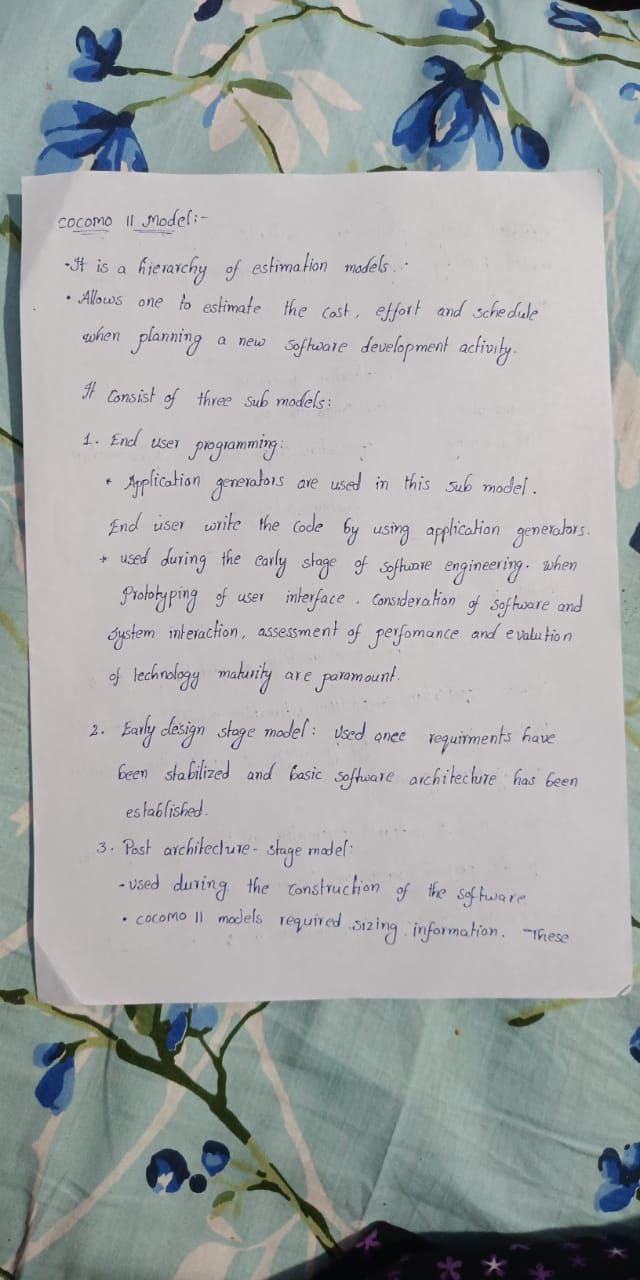 COCOMO II Model:-
- It is a hierarchy of estimation models.
• Allows one to estimate the cost, effort and schedule
when planning a new software development activity.
It Consist of three sub models:
1. End user programming:
* Application generators are used in this sub model.
End user write the code by using application generators.
* used during the early stage of software engineering. when
Prototyping of user interface. Consideration of software and
system interaction, assessment of perfomance and evalution
of technology maturity are paramount.
2. Early design stage model: Used once requirments have
been stabilized and basic software architecture has been
established.
3. Post architecture- stage model:
- used during the construction of the software
• COCOMO II models required sizing information. These